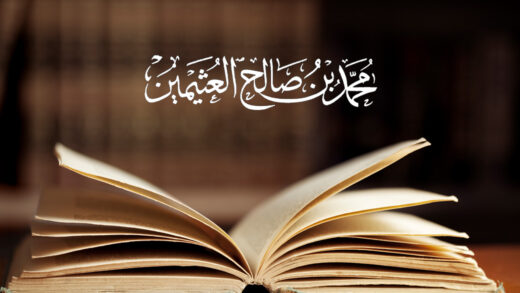 مُحَمَّد بْنُ صَالِح العُثَيْمِين